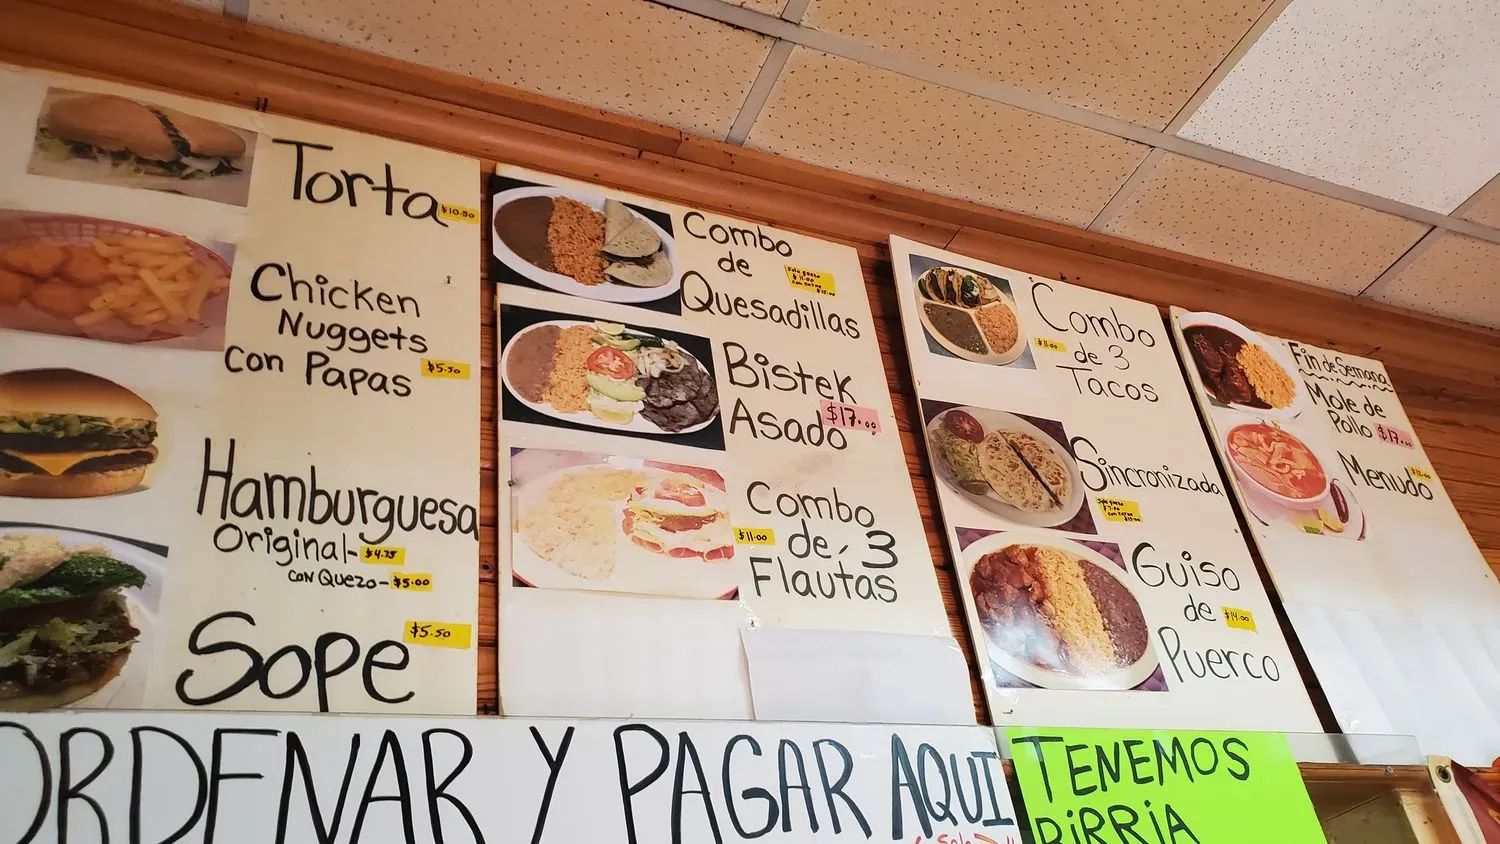 Torta $10.50
Chicken
Nuggets
con Papas $5.50
Hamburguesa
Original- $4.75
con Quezo- $5.00
Sope $5.50
Combo
de
Quesadillas
Solo queso
$11.00
con carne
Bistek
Asado $17.00
Combo
de 3
Flautas
$11.00
Combo
$11.00 de 3
Tacos
Sincronizada
Solo queso
con carne
Guiso
de $14.00
Puerco
Fin de Semana
Mole de
Pollo $17.00
Menudo
ORDENAR Y PAGAR AQUI
TENEMOS
BIRRIA